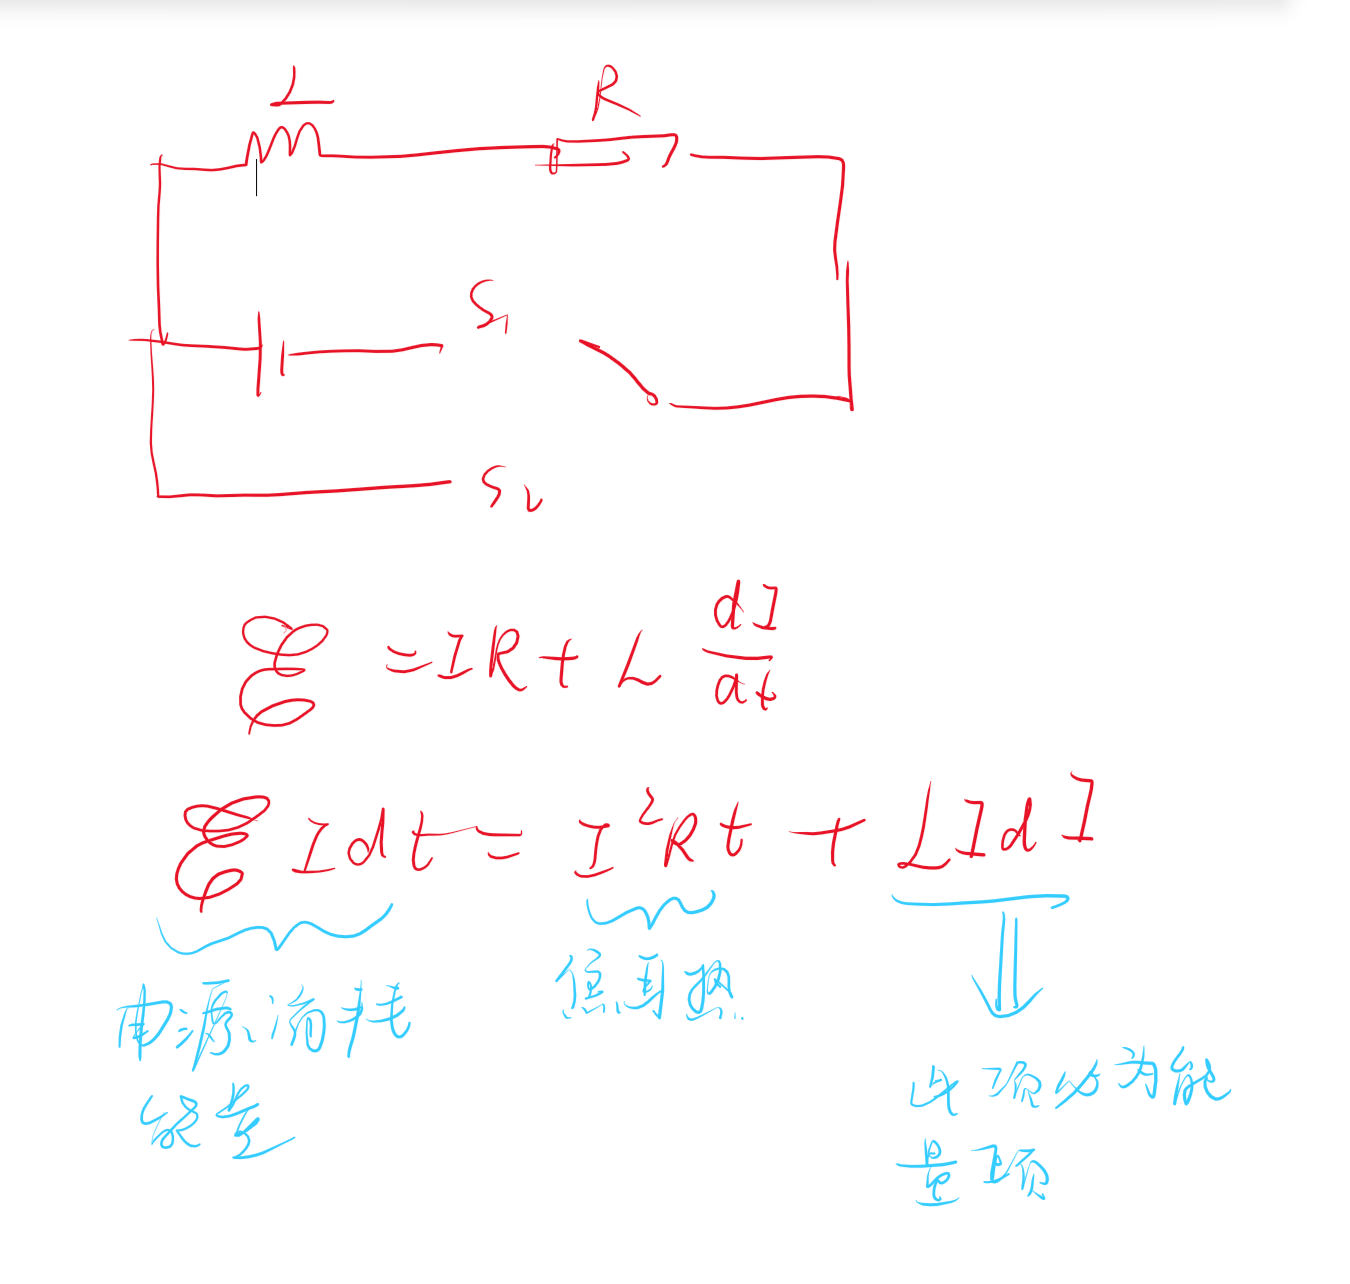 L
R
S₁
S₂
ℰ = IR + L dI/dt
ℰIdt = I²Rt + LIdI
电源消耗
能量
焦耳热
此项必为能
量项